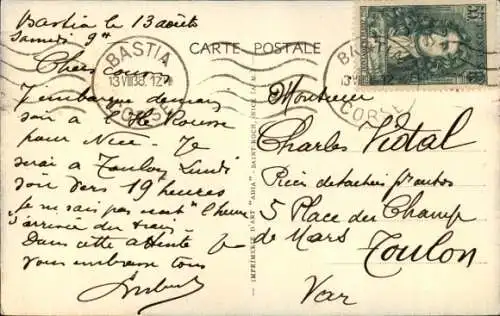 Bastia le 13 août
Samedi 9h
Chers cousins
J'embarque demain
soir à l'Ile Rousse
pour Nice. Je
serai à Toulon Lundi
soir vers 19 heures
je ne sais pas exact l'heure
d'arrivée du train.
Dans cette attente Je
vous embrasse tous
CARTE POSTALE
BASTIA
13 VIII 38
CORSE
BASTIA
CORSE
IMPRIMERIE D'ART "ADIA" SAINT-ROCH, NICE (A.M.)
Monsieur
Charles Vidal
Pièces détachées pr autos
5 Place du Champ
de Mars Toulon
Var